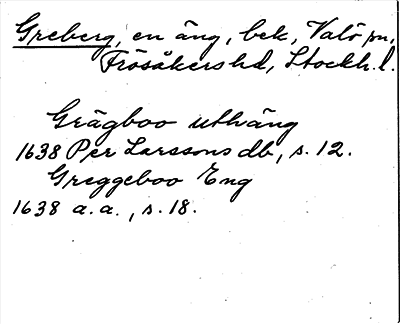 Greberg, en äng, bek, Valö sn,
Frösåkers hd, Stockh. l.
Grägboo uthäng
1638 Per Larssons db, s. 12.
Greggeboo Eng
1638 a. a., s. 18.